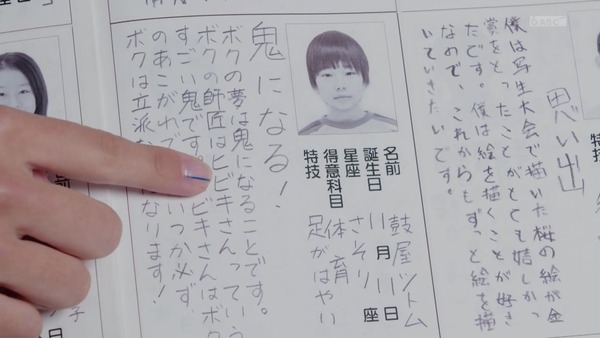 思い出
僕は写生大会で描いた桜の絵が金
賞をとったことがとても嬉しかっ
たです。僕は絵を描くことが好き
なので、これからもずっと絵を描
いていきたいです。
名前 鼓屋ツトム
誕生日 11月11日
星座 さそり座
得意科目 体育
特技 足がはやい
鬼になる!
ボクの夢は鬼になることです。
ボクの師匠はヒビキさんっていう
すごい鬼です。ビキさんはボク
のあこがれで いつか必ず、
ボクは立派な なります!
6 ABC